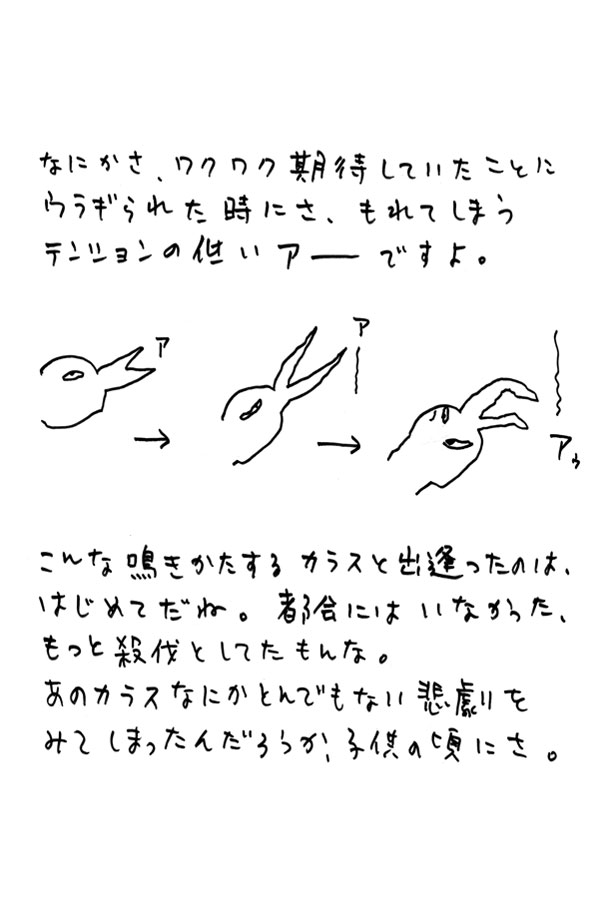 なにかさ、ワクワク期待していたことに
ウラギられた時にさ、もれてしまう
テンションの低いアーですよ。
ア
ア
アゥ
こんな鳴きかたするカラスと出逢ったのは、
はじめてだね。都会にはいなかった、
もっと殺伐としてたもんな。
あのカラスなにかとんでもない悲劇を
みてしまったんだろうか、子供の頃にさ。